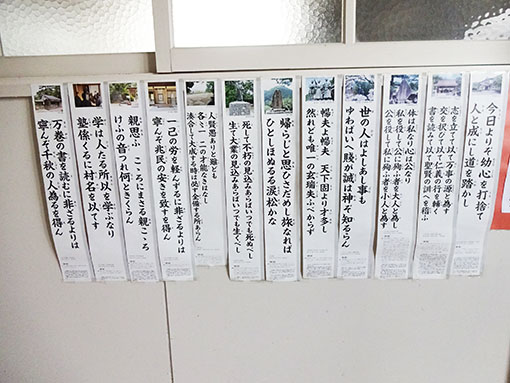 今日よりぞ幼心を打捨て
人と成にし道を踏かし
志を立て以て万事の源と為す
交を択びて以て仁義の行を輔く
書を読みて以て聖賢の訓へを稽ふ
体は私なり心は公なり
私を役して公に殉ふ者を大人と為し
公を役して私に殉ふ者を小人と為す
世の人はよしあし事も
いわばいへ賤が誠は神ぞ知るらん
暢夫よ暢夫 天下固より才多し
然れども唯一の玄瑞失ふべからず
帰らじと思ひさだめし旅なれば
ひとしほぬるる涙松かな
死して不朽の見込みあらばいつでも死ぬべし
生て大業の見込みあらばいつでも生くべし
人賢愚ありと雖ども
各々一二の才能なきはなし
湊合して大成する時は必ず全備する所あらん
一己の労を軽んずるに非ざるよりは
寧んぞ兆民の安きを致すを得ん
親思ふこころにまさる親ごころ
けふの音づれ何ときくらん
学は人たる所以を学ぶなり
塾係くるに村名を以てす
万巻の書を読むに非ざるよりは
寧んぞ千秋の人為るを得ん